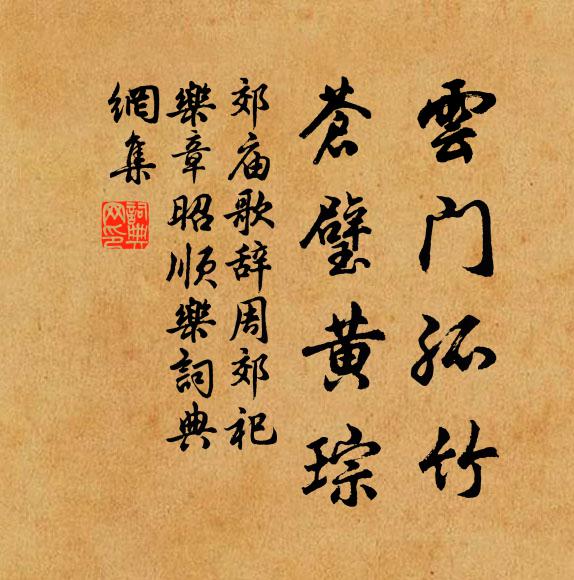 雲门孤竹
苍璧黄琮
郊庙歌辞周郊祀
樂章昭顺樂詞典
網集
詞典
网印